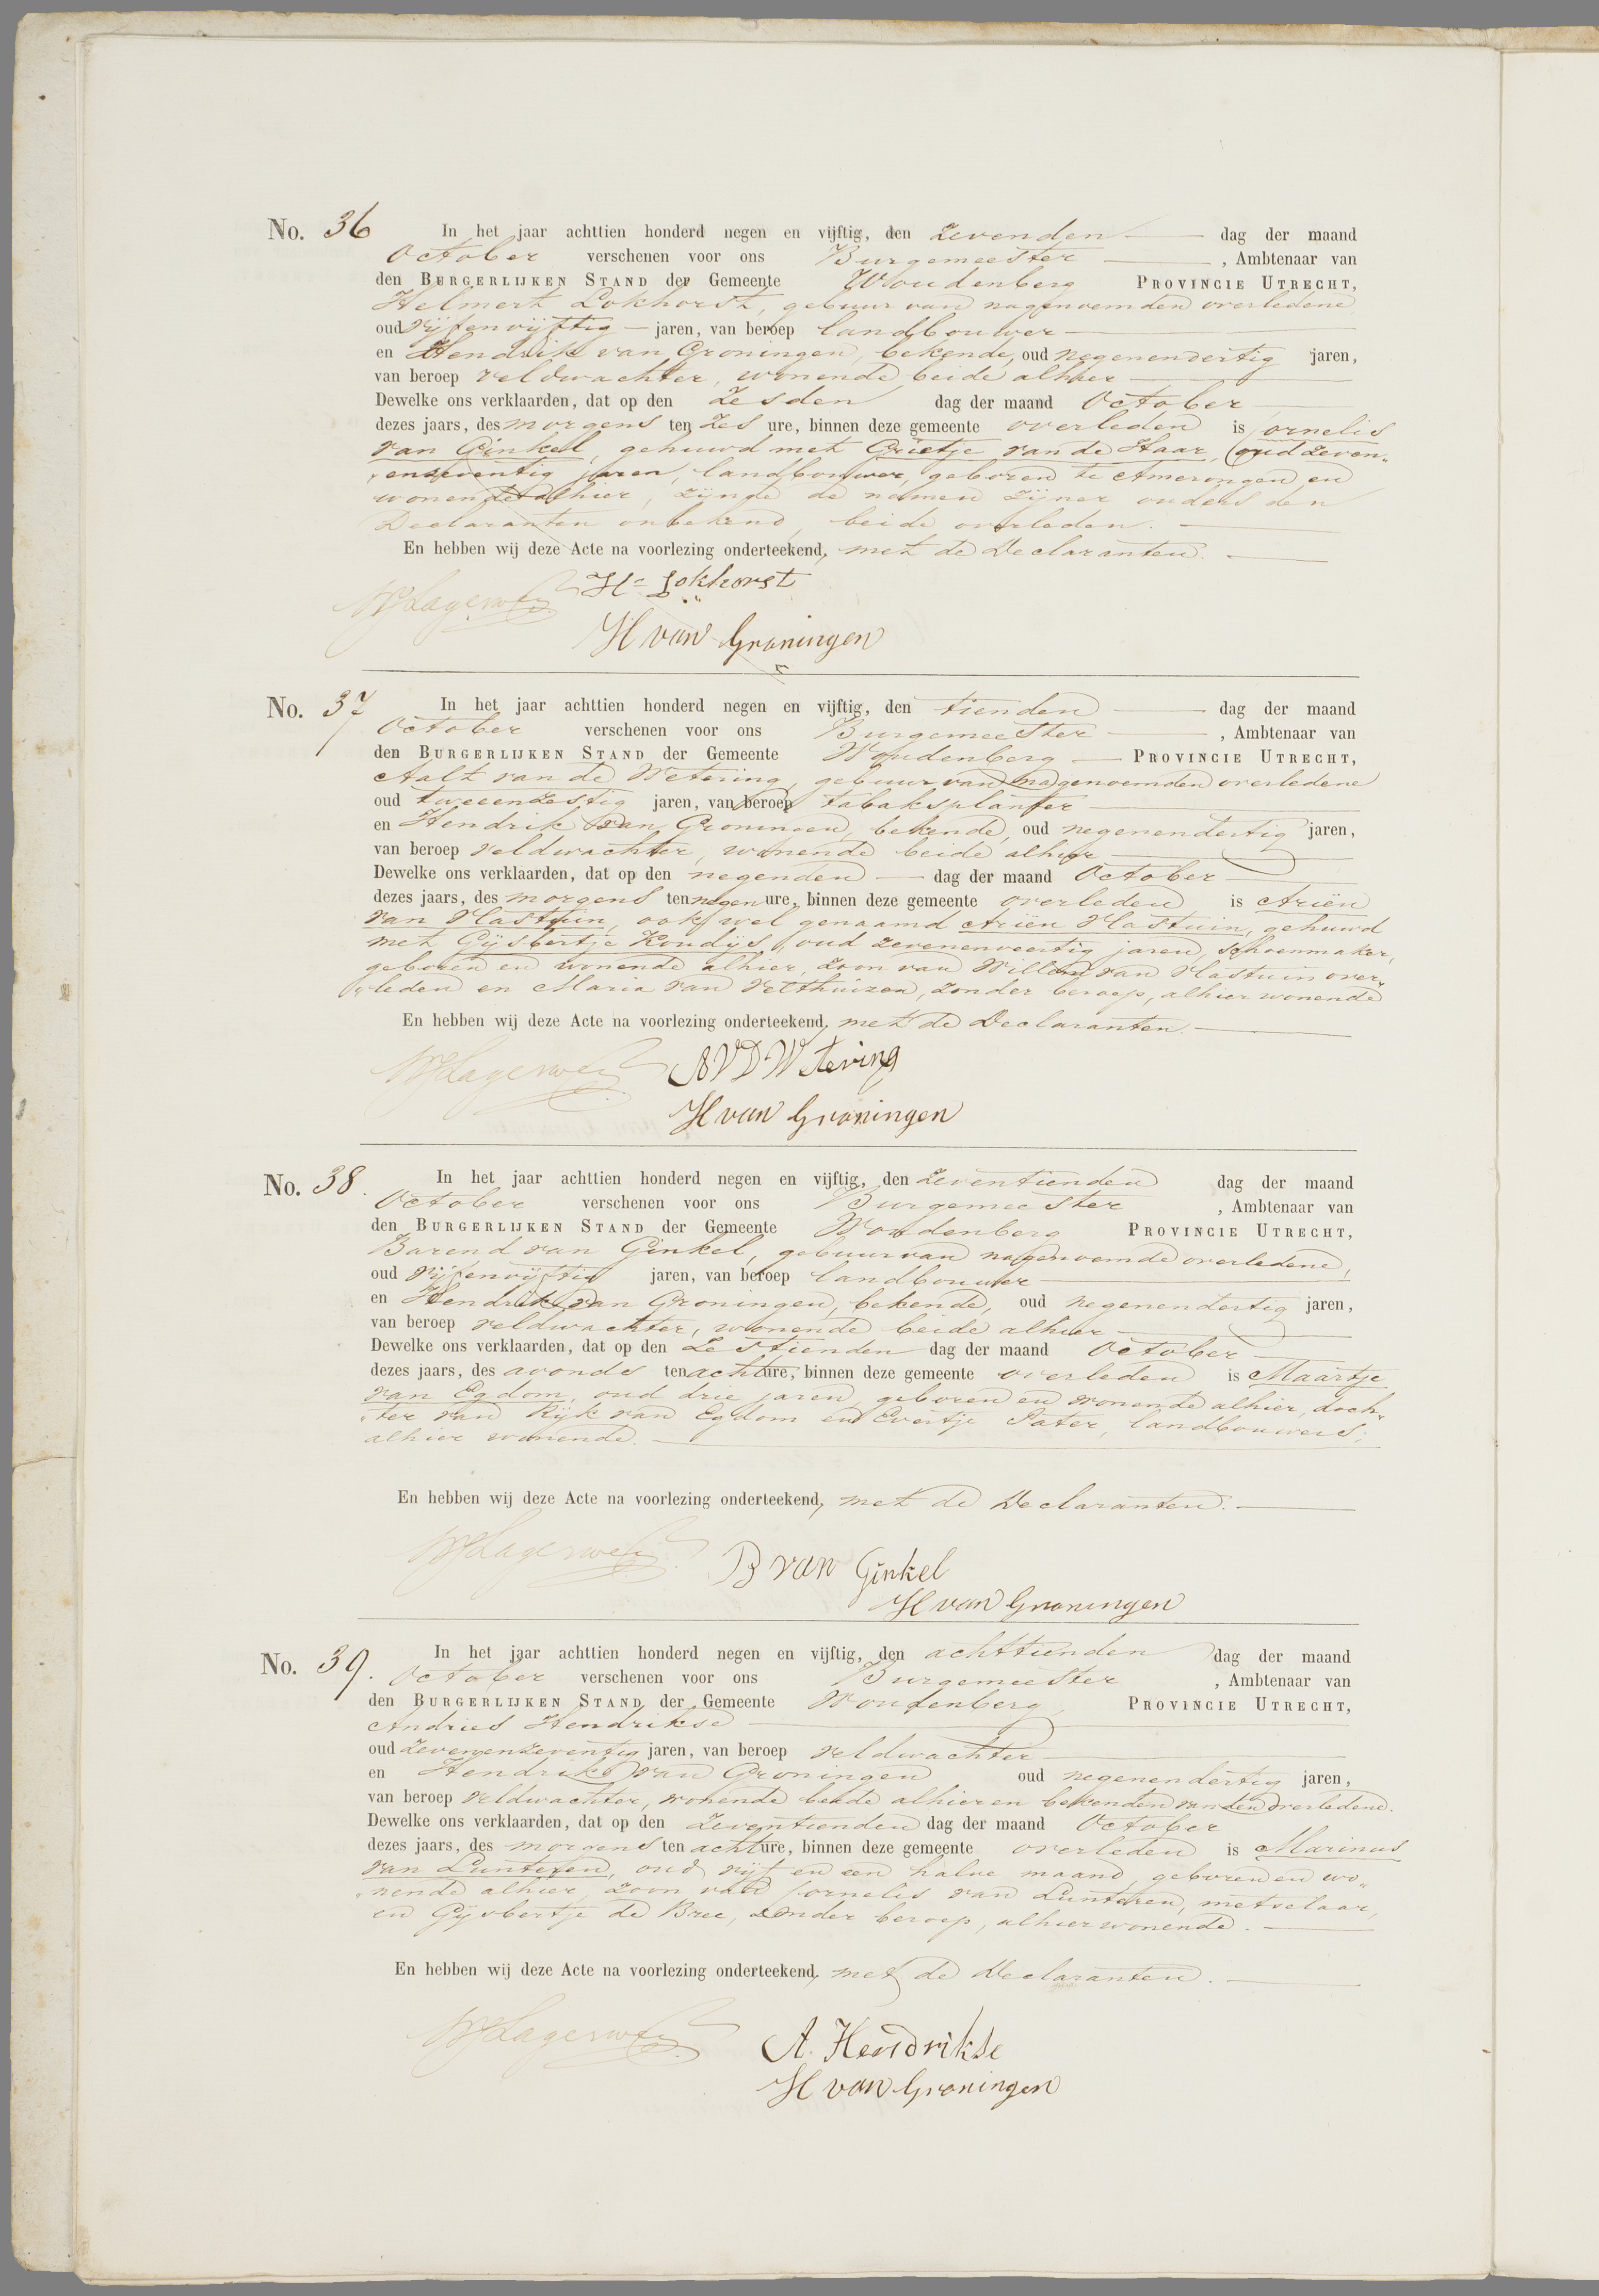 No. 36 In het jaar achttien honderd negen en vijftig, den zevenden dag der maand
October verschenen voor ons Burgemeester , Ambtenaar van
den Burgerlijken Stand der Gemeente Woudenberg Provincie Utrecht,
Helmert Lokhorst, gebuur van nagenoemden overledene
oud vijfenvijftig jaren, van beroep landbouwer
en Hendrik van Groningen, bekende, oud negenendertig jaren,
van beroep veldwachter, wonende beide alhier
Dewelke ons verklaarden, dat op den Zesden dag der maand October
dezes jaars, des morgens ten zes ure, binnen deze gemeente overleden is Cornelis
van Ginkel, gehuwd met Grietje van de Haar, oud zeven„
„enzeventig jaren, landbouwer, geboren te Amerongen en
wonende alhier, zijnde de namen zijner ouders den
Declaranten onbekend, beide overleden.
En hebben wij deze Acte na voorlezing onderteekend, met de Declaranten.
Hs Lokhorst
Lagerweij
H van Groningen
No. 37 In het jaar achttien honderd negen en vijftig, den tienden dag der maand
October verschenen voor ons Burgemeester , Ambtenaar van
den Burgerlijken Stand der Gemeente Woudenberg Provincie Utrecht,
Aalt van de Wetering, gebuur van nagenoemden overledene
oud tweeenzestig jaren, van beroep tabaksplanter
en Hendrik van Groningen, bekende, oud negenendertig jaren,
van beroep veldwachter, wonende beide alhier
Dewelke ons verklaarden, dat op den negenden dag der maand October
dezes jaars, des morgens ten negen ure, binnen deze gemeente overleden is Ariën
van Vlastuin, ook wel genaamd Ariën Vlastuin, gehuwd
met Gijsbertje Koudijs, oud zevenenveertig jaren, schoenmaker,
geboren en wonende alhier, zoon van Willem van Vlastuin over„
„leden en Maria van Velthuizen, zonder beroep, alhier wonende
En hebben wij deze Acte na voorlezing onderteekend, met de Declaranten.
Lagerweij AVDWetering
H van Groningen
No. 38. In het jaar achttien honderd negen en vijftig, den zeventienden dag der maand
October verschenen voor ons Burgemeester , Ambtenaar van
den Burgerlijken Stand der Gemeente Woudenberg Provincie Utrecht,
Barend van Ginkel, gebuur van nagenoemde overledene,
oud vijfenvijftig jaren, van beroep landbouwer
en Hendrik van Groningen, bekende, oud negenendertig jaren,
van beroep veldwachter, wonende beide alhier
Dewelke ons verklaarden, dat op den Zestienden dag der maand October
dezes jaars, des avonds ten acht ure, binnen deze gemeente overleden is Maartje
van Egdom, oud drie jaren, geboren en wonende alhier, doch„
„ter van Rijk van Egdom en Evertje Pater, landbouwers,
alhier wonende.
En hebben wij deze Acte na voorlezing onderteekend, met de Declaranten.
Lagerweij B van Ginkel
H van Groningen
No. 39. In het jaar achttien honderd negen en vijftig, den achttienden dag der maand
October verschenen voor ons Burgemeester , Ambtenaar van
den Burgerlijken Stand der Gemeente Woudenberg Provincie Utrecht,
Andries Hendrikse
oud zevenenzeventig jaren, van beroep veldwachter
en Hendrik van Groningen oud negenendertig jaren,
van beroep veldwachter, wonende beide alhier en bekenden van den overledene.
Dewelke ons verklaarden, dat op den zeventienden dag der maand October
dezes jaars, des morgens ten acht ure, binnen deze gemeente overleden is Marinus
van Lunteren, oud vijf en een halve maand, geboren en wo„
„nende alhier, zoon van Cornelis van Lunteren, metselaar,
en Gijsbertje de Bree, zonder beroep, alhier wonende.
En hebben wij deze Acte na voorlezing onderteekend, met de Declaranten.
Lagerweij A. Hendrikse
H van Groningen